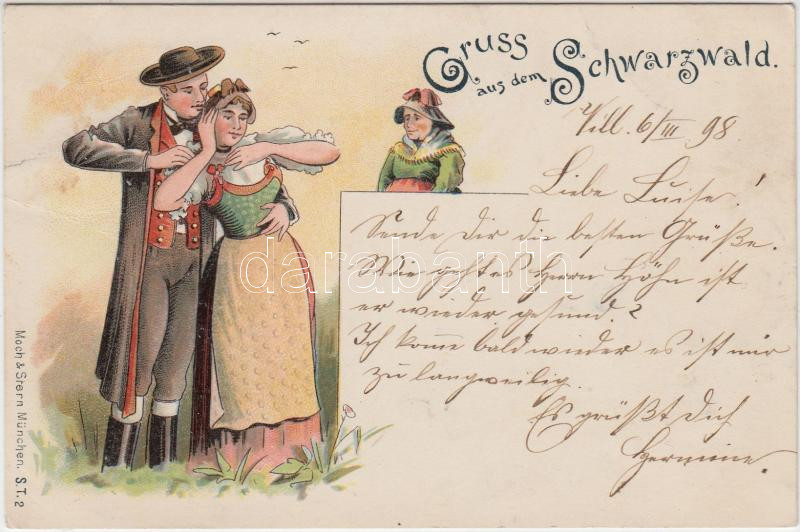 Gruss
aus dem
Schwarzwald.
Vill. 6/III 98
Liebe Luise!
Sende Dir die besten Grüße.
Wie geht es Herrn Höhn ist
er wieder gesund?
Ich kome bald wieder es ist mir
zu langweilig.
Es grüßt Dich
Hermine.
Moch & Stern München. S.T. 2
darabanth